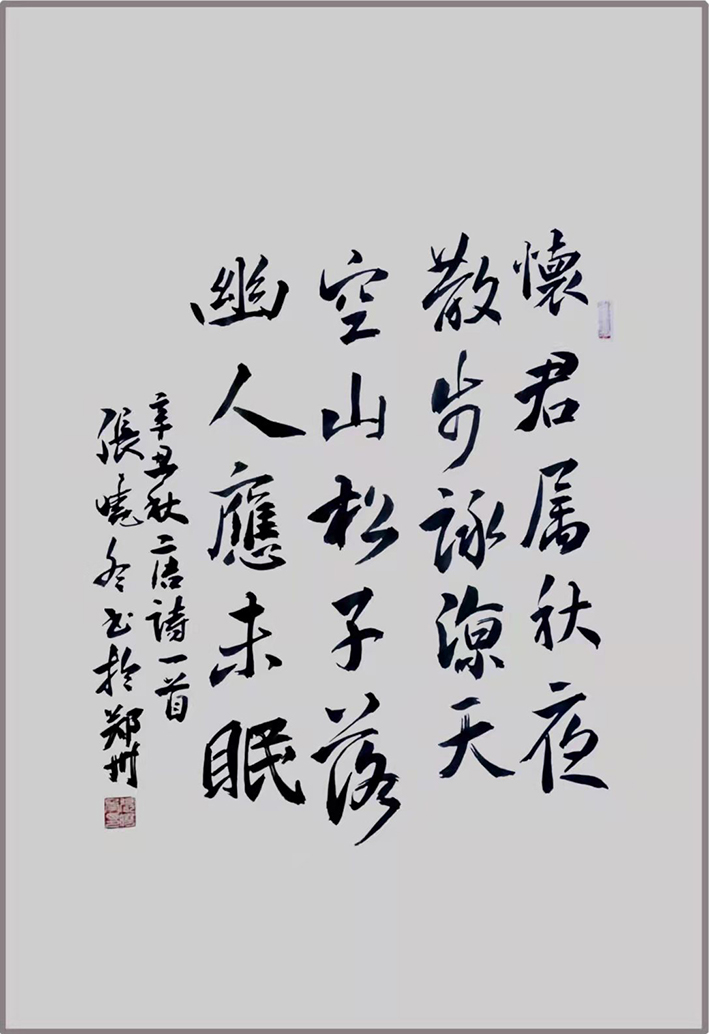 懷君属秋夜
散步詠涼天
空山松子落
幽人應未眠
辛丑秋唐詩一首
張曉冬书於郑州